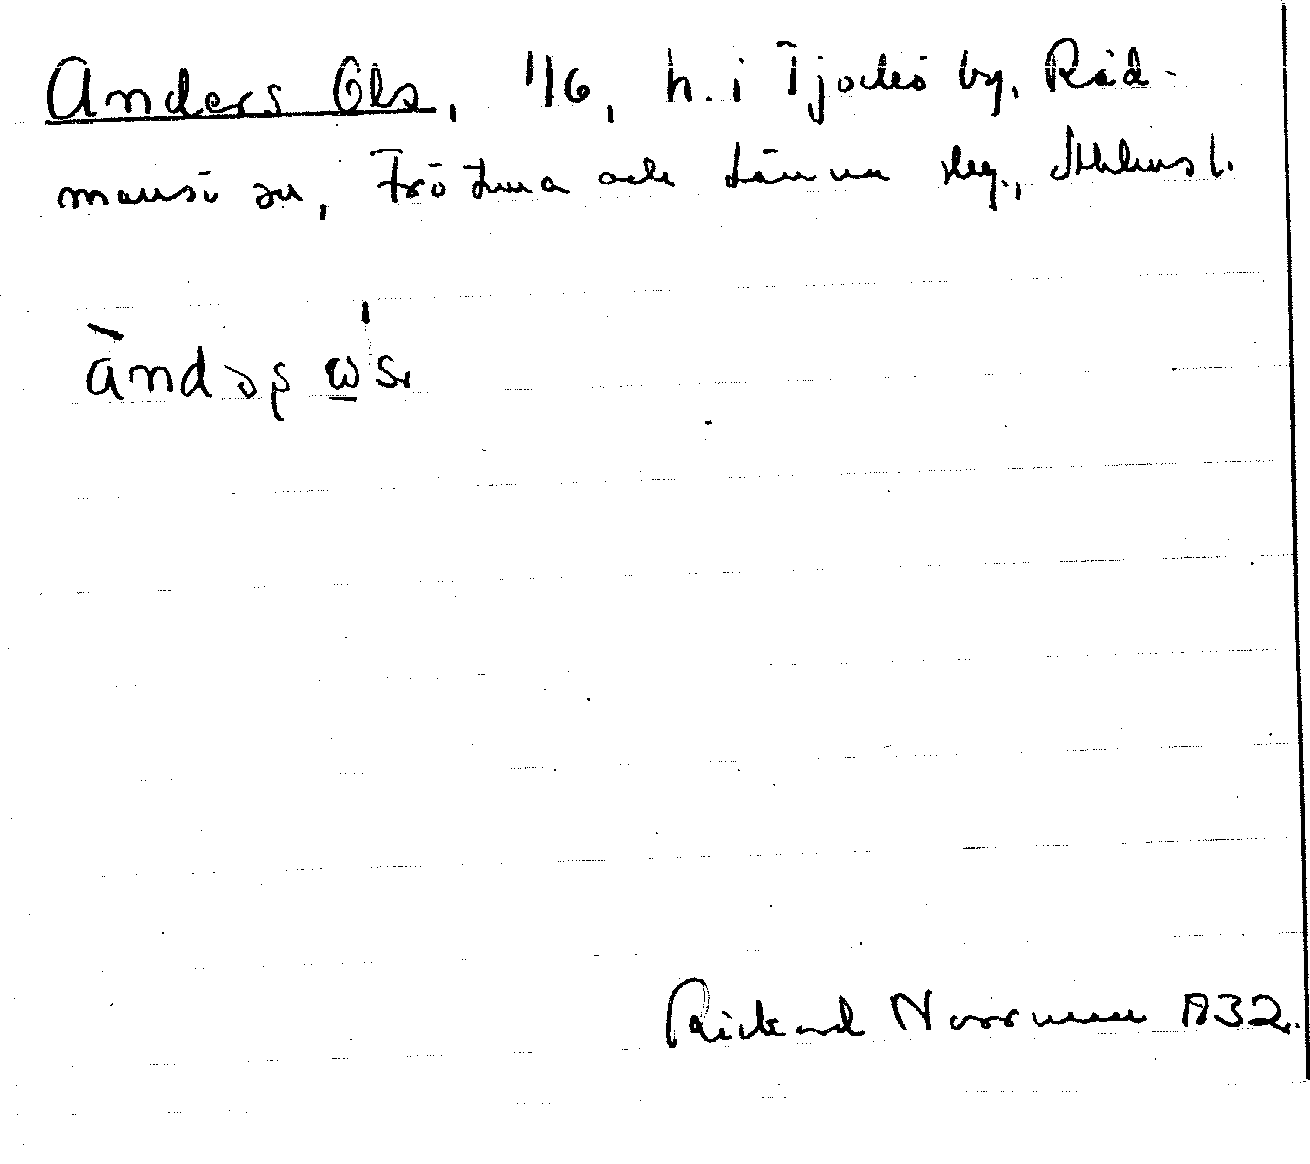 Anders Ols, 1/6, h. i Tjockö by, Råd-
mansö sn, Frötuna och Länna skg., Sthlms l.
ändəş ωs.
Rickard Norrman 1932.